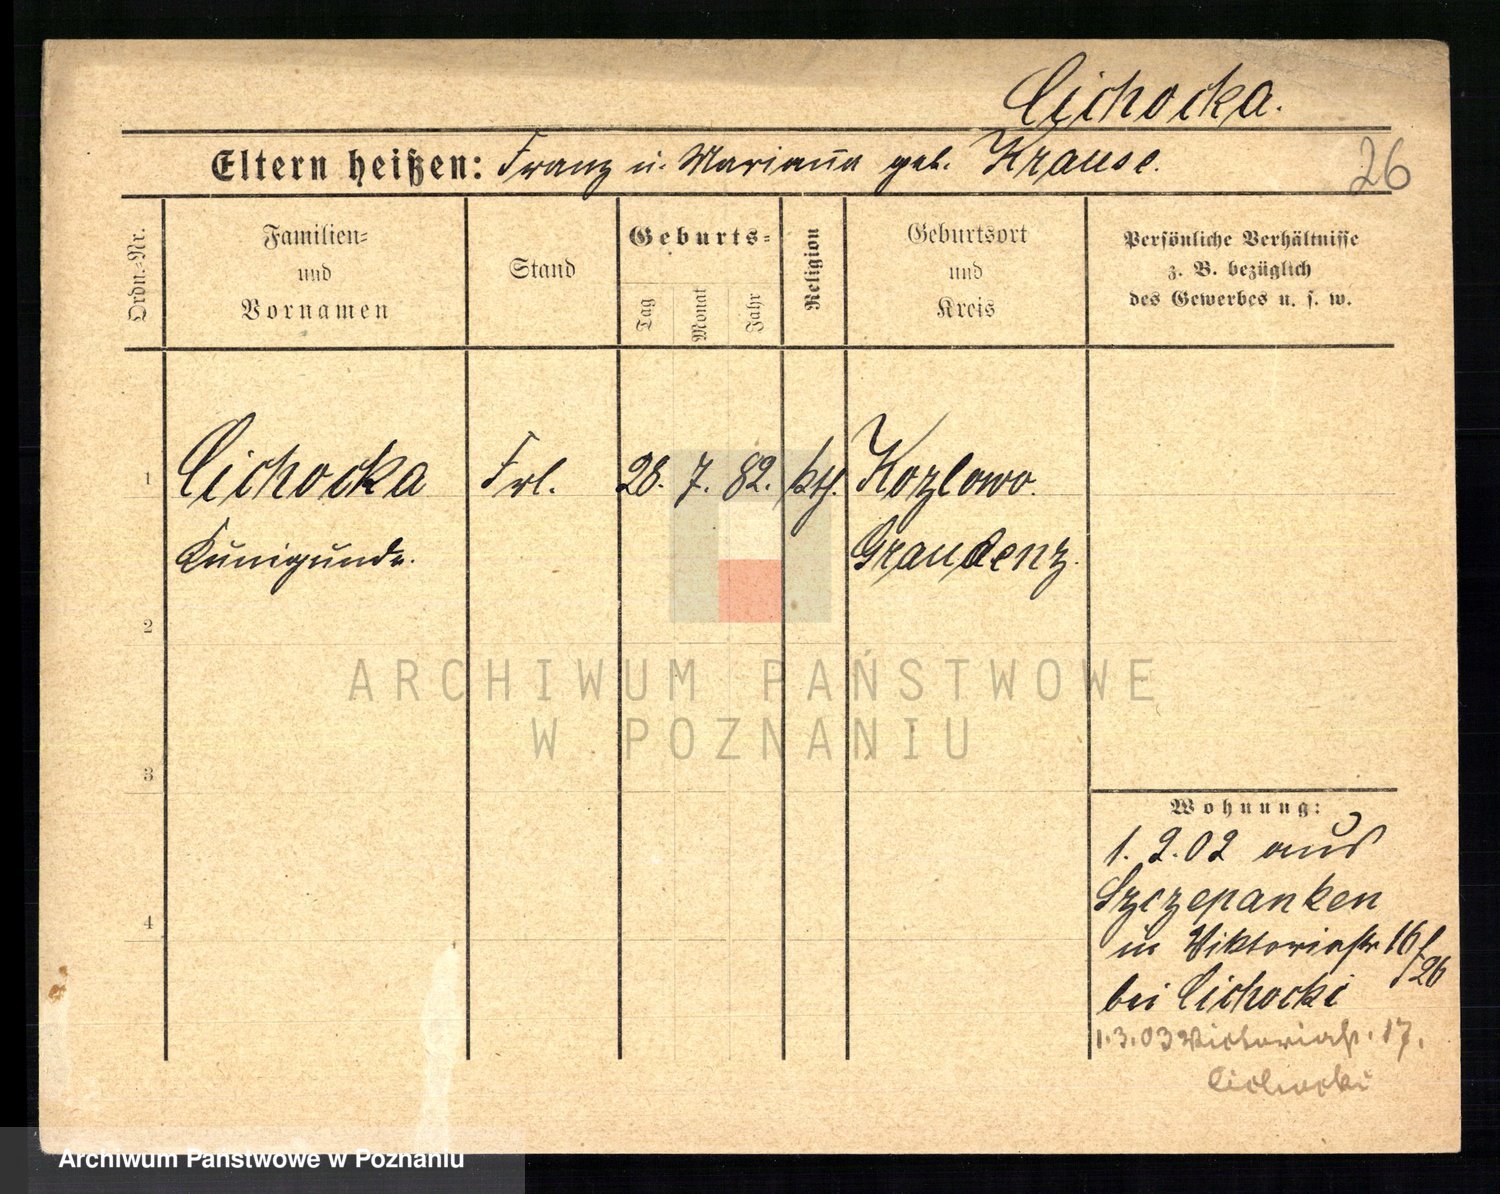 Cichocka.
Eltern heißen: Franz u. Marianna geb. Krause.
26
Ordn.-Nr.
Familien- und Vornamen
Stand
Geburts-
Tag
Monat
Jahr
Religion
Geburtsort und Kreis
Persönliche Verhältnisse
z. B. bezüglich
des Gewerbes u. s. w.
1 Cichocka Frl. 28. 7. 82. kth. Kozlowo.
Kunigunde. Graudenz.
2
3
4
Wohnung:
1. 2. 02 aus
Szczepanken
in Viktoriastr 16/26
bei Cichocki
1. 3. 03 Victoriastr. 17.
Cichocki
ARCHIWUM PAŃSTWOWE
W POZNANIU
Archiwum Państwowe w Poznaniu